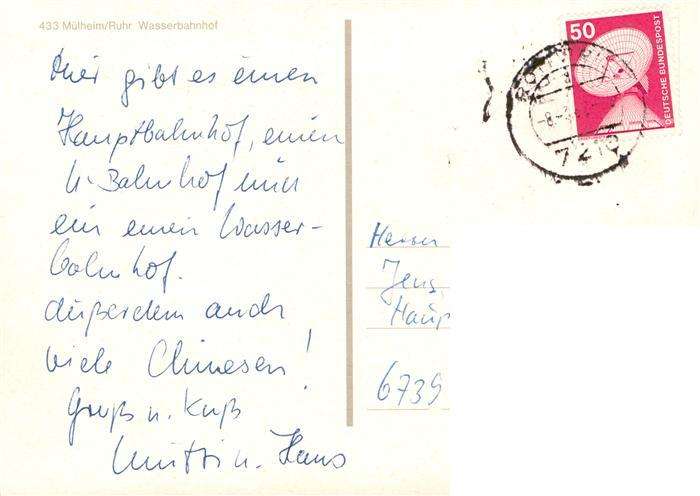 433 Mülheim/Ruhr Wasserbahnhof
Hier gibt es einen
Hauptbahnhof, einen
U-Bahnhof und
ein einen Wasser-
bahnhof.
Außerdem auch
viele Chinesen!
Gruß u. Kuß
Mutti u. Hans
50
DEUTSCHE BUNDESPOST
7210
Herrn
Jens
Haup
6739